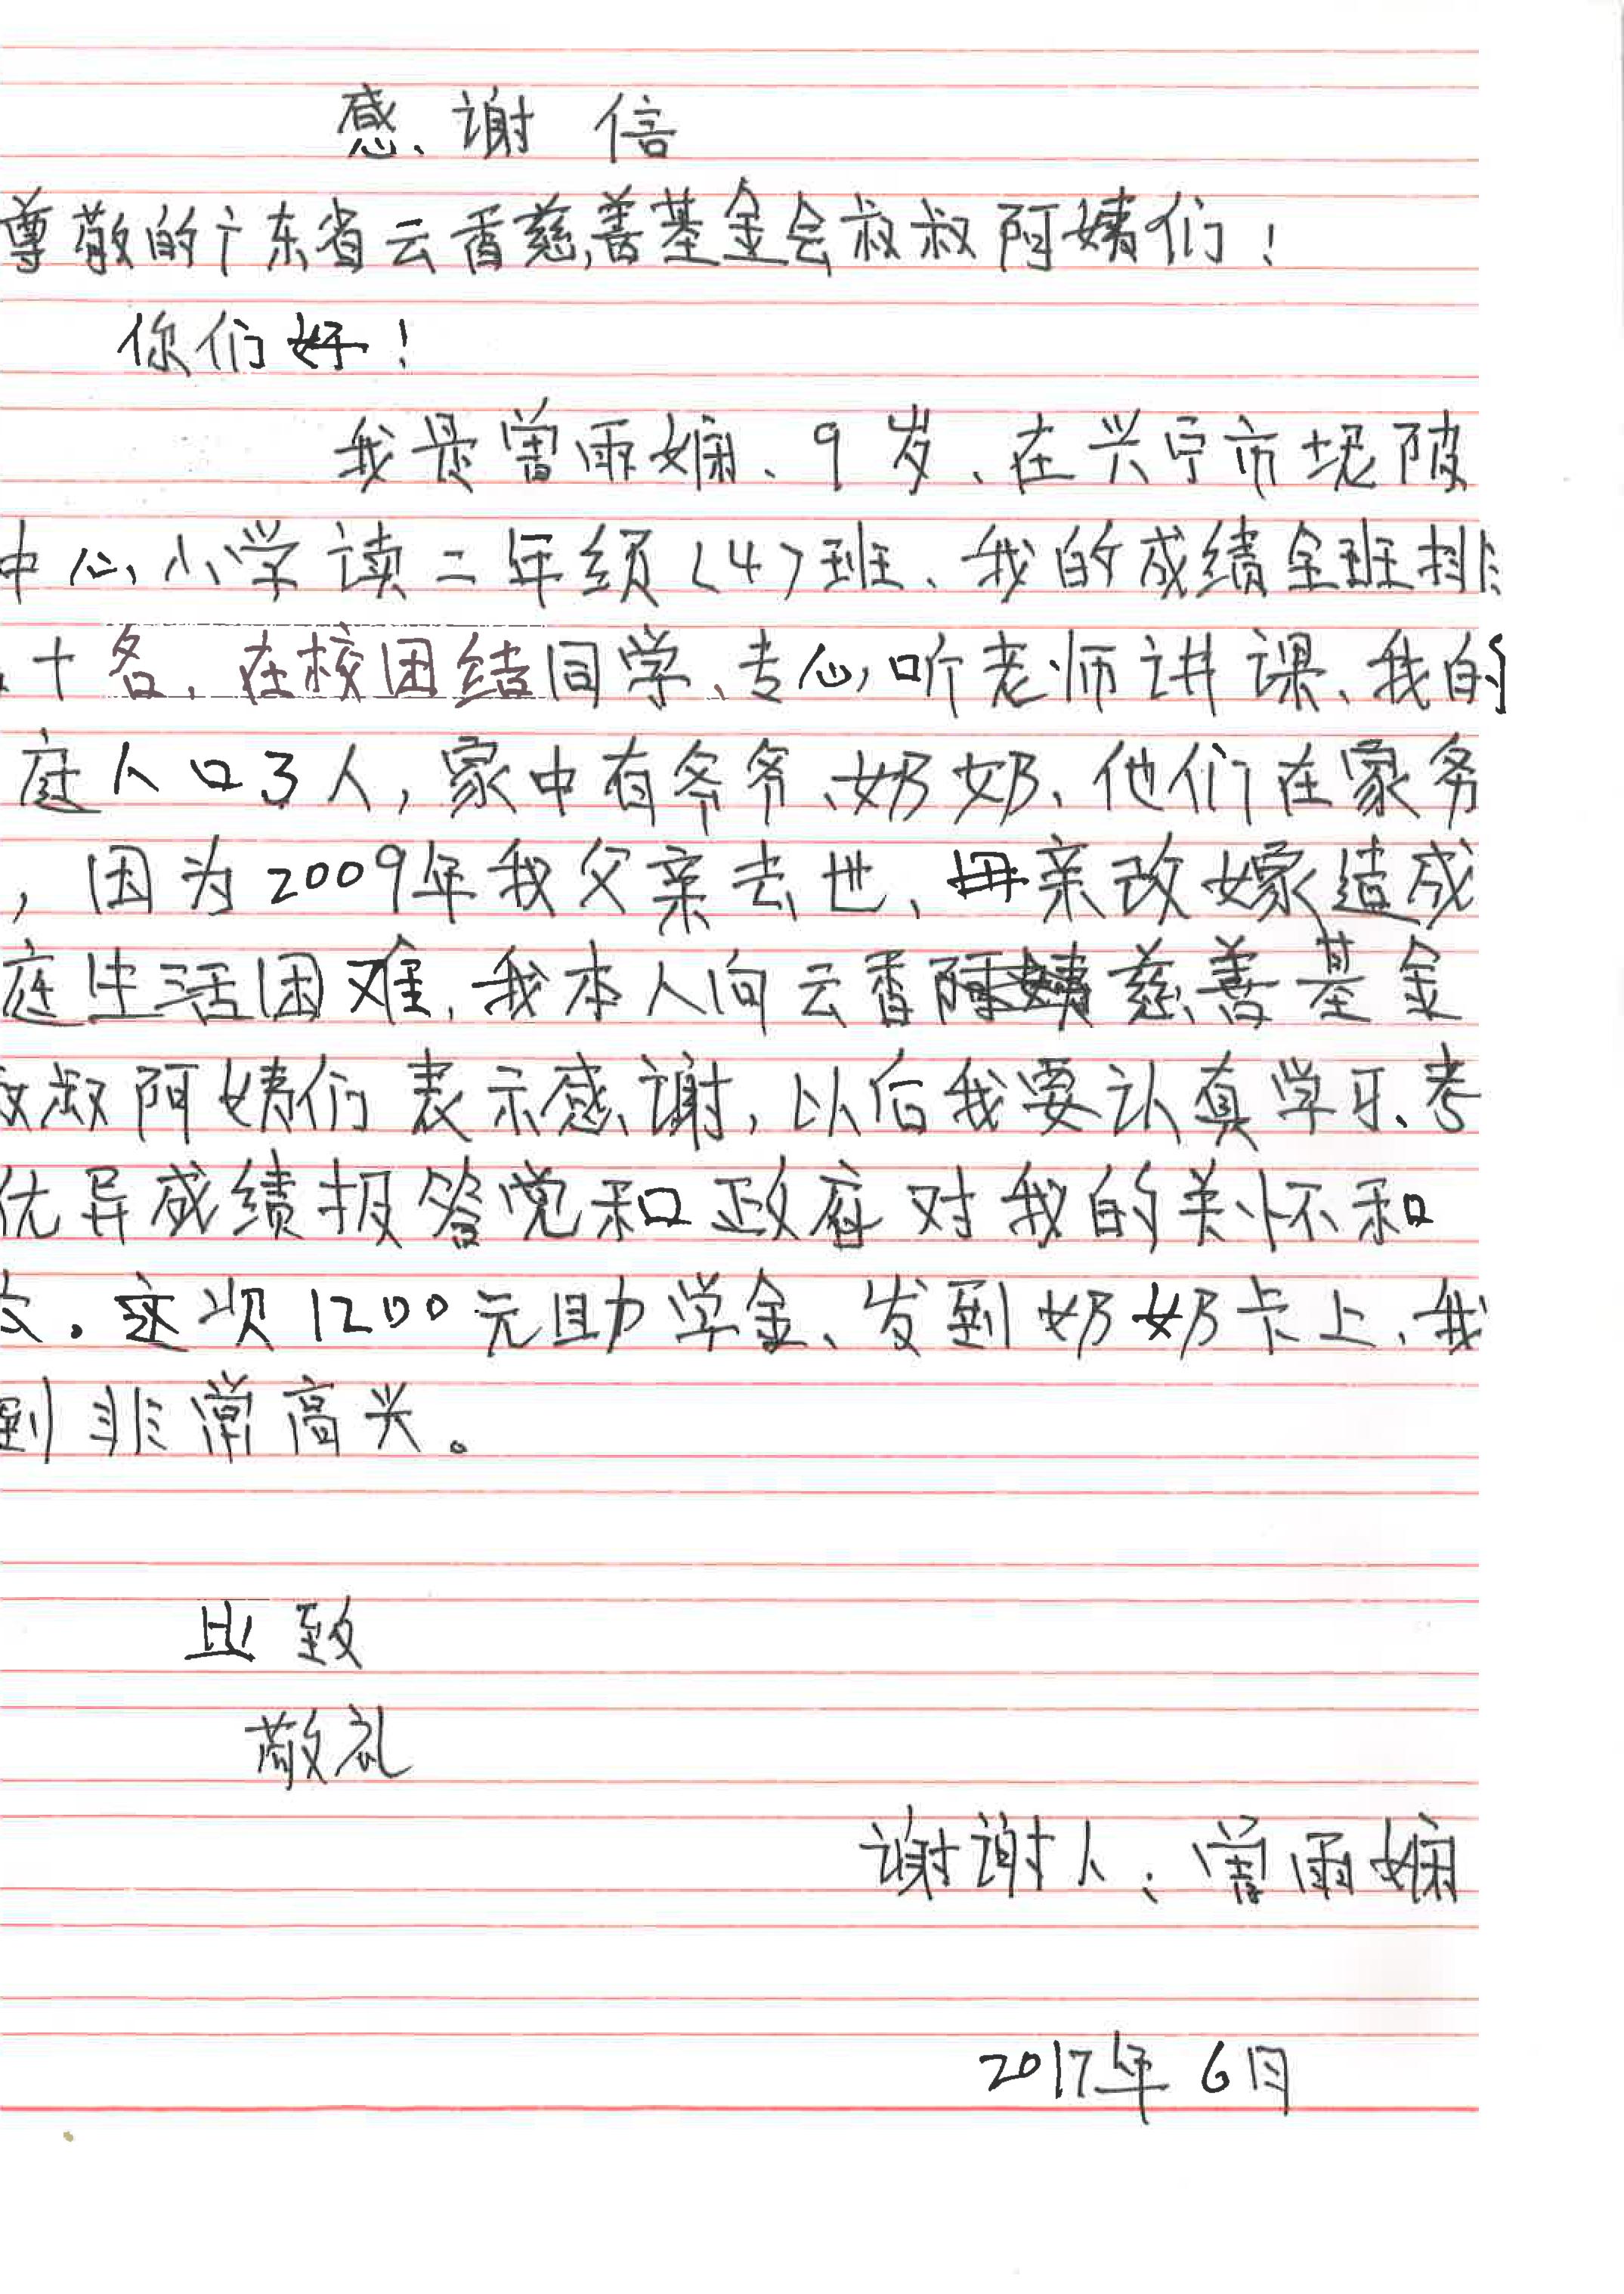 感谢信
尊敬的广东省云香慈善基金会叔叔阿姨们！
你们好！
我是曾雨娴、9岁、在兴宁市坭陂
中心小学读二年级（4）班、我的成绩全班排
十名、在校团结同学、专心听老师讲课、我的
庭人口3人，家中有爷爷、奶奶、他们在家务
，因为2009年我父亲去世、母亲改嫁造成
庭生活困难，我本人向云香慈善基金
叔叔阿姨们表示感谢，以后我要认真学习、考
优异成绩报答党和政府对我的关怀和
。这次1200元助学金、发到奶奶卡上、我
到非常高兴。
此致
敬礼
谢谢人：曾雨娴
2017年6月